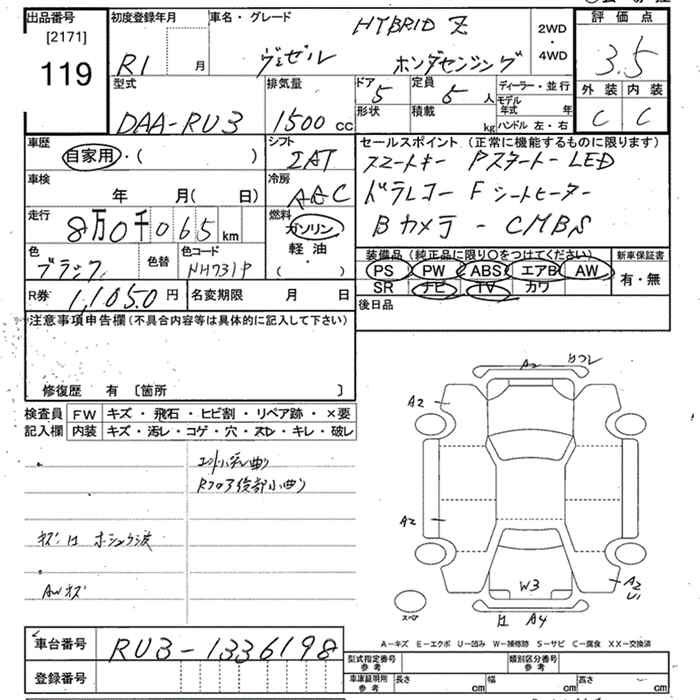 出品番号
[2171]
119
初度登録年月
R1 月
車名・グレード
HYBRID Z
ヴェゼル ホンダセンシング
2WD
・
4WD
評価点
3.5
外装 内装
C C
型式
DAA-RU3
排気量
1500 cc
ドア
5
定員
5 人
形状
積載
kg
ディーラー・並行
モデル年式 年
ハンドル 左・右
車歴
自家用・( )
シフト
IAT
セールスポイント (正常に機能するものに限ります)
スマートキー Pスタート LED
ドラレコー Fシートヒーター
Bカメラ - CMBS
車検
年 月( 日)
冷房
AAC
走行
8万0千065km
燃料
ガソリン
軽油
( ・ )
色
ブラック
色替
色コード
NH731P
装備品 (純正品に限り○をつけてください)
PS PW ABS エアB AW
SR ナビ TV カワ
新車保証書
有・無
R券
11,050円
名変期限 月 日
後日品
注意事項申告欄 (不具合内容等は具体的に記入して下さい)
修復歴 有 〔箇所 〕
検査員記入欄
FW キズ・飛石・ヒビ割・リペア跡・×要
内装 キズ・汚レ・コゲ・穴・スレ・キレ・破レ
Rフロア後部小曲り
AWキズ
A2
A2
A2
W3
A2
U1
A4
スペア
A-キズ E-エクボ U-凹み W-補修跡 S-サビ C-腐食 XX-交換済
車台番号
RU3-1336198
登録番号
型式指定番号
参考
類別区分番号
参考
車庫証明用
参考
長さ cm
幅 cm
高さ cm